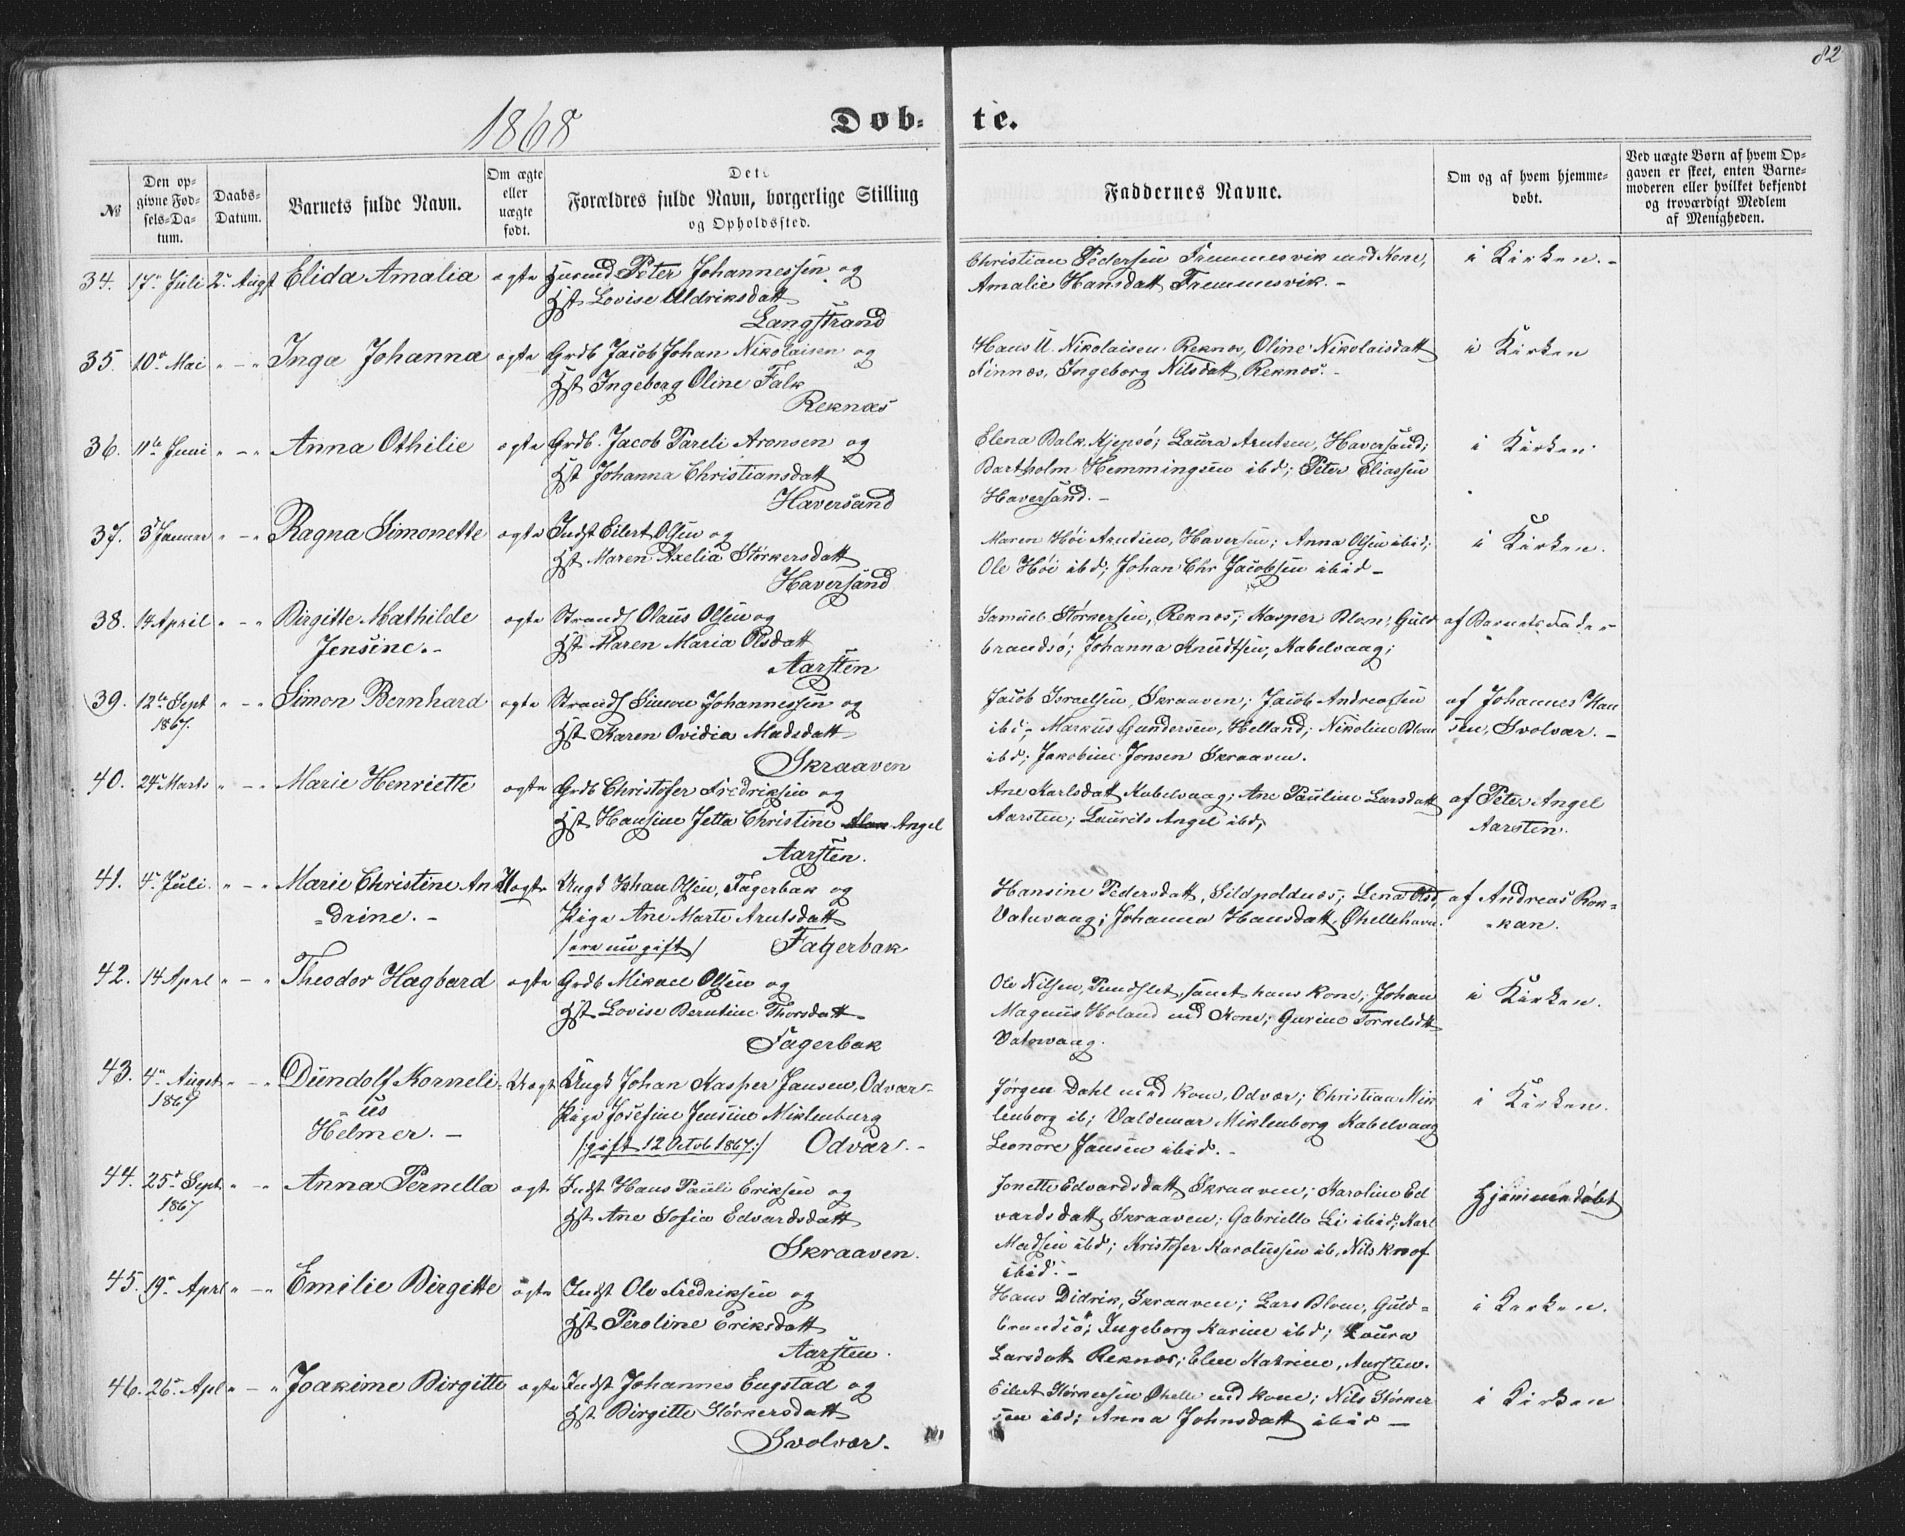 82
1868
Døb-te.
№
Den opgivne Fødsels-Datum.
Daabs-Datum.
Barnets fulde Navn.
Om ægte eller uægte født.
Forældres fulde Navn, borgerlige Stilling og Opholdssted.
Faddernes Navne.
Om og af hvem hjemmedøbt.
Ved uægte Børn af hvem Opgaven er skeet, enten Barnemoderen eller hvilket bekjendt og troværdigt Medlem af Menigheden.
34. 17 Juli 2 Augst Elida Amalia ægte Husmd Peter Johannessen og
Hst Lovise Uldriksdatt
Langstrand
Christian Pedersen Tremmesvik med Kone,
Amalie Hansdatt Tremmesvik. -
i Kirken. -
35. 10 Mai " - " Inga Johanna ægte Grdb Jacob Johan Nikolaisen og
Hst Ingeborg Oline Falk
Reknæs
Hans U. Nikolaisen Reknes, Oline Nikolaisdatt
Finnæs, Ingeborg Nilsdatt, Reknes. -
i Kirken
36. 11te Juni " - " Anna Othilie ægte Grdb. Jacob Pareli Aronsen og
Hst Johanna Christiansdatt
Haversand
Elena Balk Kjepsø; Laura Arntsen, Haversand;
Bartholm Hemmingsen ibd; Peter Eliassen
Haversand. -
i Kirken
37. 3 Januar " - " Ragna Simonette ægte Indst Eilert Olsen og
Hst Maren Axelia Størkersdatt
Haversand
Maren Høi Arntsen, Haversen; Anna Olsen ibid;
Ole Høi ibd; Johan Chr Jacobsen ibid -
i Kirken.
38. 14 April " - " Birgitte Mathilde
Jensine. -
ægte Strands Olaus Olsen og
Hst Maren Maria Olsdatt
Aarsten
Samuel Størkersen, Reknes; Kasper Blom, Guld
brandsø; Johanna Knudtsen, Kabelvaag;
af Barnets Fader
39. 12te Sept
1867.
" - " Simon Bernhard ægte Strands Simon Johannessen og
Hst Karen Ovidia Madsdatt
Skraaven
Jacob Israelsen, Skraaven; Jacob Andreasen
ibi; Markus Gundersen, Helland; Nikoline Blom
ibd; Jakobine Jonsen Skraaven.
af Johannes Han
sen, Svolvær. -
40. 24 Marts " - " Marie Henriette ægte Grdb Christofer Fredriksen og
Hst Hansine Jetta Christine Angel
Aarsten.
Ane Karlsdatt Kabelvaag; Ane Pauline Larsdatt
Aarsten; Laurits Angel ibd;
af Peter Angel
Aarsten.
41. 4 Juli. " - " Marie Christine An
drine. -
Uægte Ungk Johan Olsen, Fagerbak og
Pige Ane Marte Arntsdatt
/ere nu gift/ Fagerbak
Hansine Pedersdatt, Sildpoldnes; Lena Olsd,
Vatnvaag; Johanna Hansdatt, Øhellehavn.
af Andreas Rok-
kan.
42. 14 Aprl " - " Theodor Hagbard ægte Grdb Mikael Olsen og
Hst Lovise Berntine Thorsdatt
Fagerbak
Ole Nilsen, Pundslet, samt hans Kone; Johan
Magnus Holand med Kone; Gurine Torkelsdtt
Vatnvaag.
i Kirken.
43. 4 Augst
1867
" - " Dundolf Korneli
us
Helmer. -
Uægte Ungk Johan Kasper Jansen, Odvær -
Pige Josefine Jensine Miklenburg
/:gift 12 Octob 1867:/ Odvær. -
Jørgen Dahl med Kone, Odvær; Christian Mik
lenborg ib; Valdemar Miklenborg Kabelvaag
Leonore Jansen ibid. -
i Kirken.
44. 25 Sept
1867
" - " Anna Pernella ægte Indst Hans Pauli Eriksen og
Hst Ane Sofia Edvardsdatt
Skraaven.
Jonette Edvardsdatt, Skraaven; Karoline Ed
vardsdatt, Skraaven; Gabrielle Li ibid; Karl
Madsen ibd; Kristofer Karolussen ib, Nils Kroof
ibid. -
Hjemmedøbt
45. 19 Aprl " - " Emilie Birgitte ægte Indst Ole Fredriksen og
Hst Peroline Eriksdatt
Aarsten.
Hans Didrik, Skraaven; Lars Blom, Guld-
brandsø; Ingeborg Karine ibd; Laura
Larsdatt Reknæs; Elen Katrine, Aarsten.
i Kirken.
46. 26 Apl " - " Joakime Birgitte ægte Indst Johannes Engstad og
Hst Birgitte Størkersdatt
Svolvær.
Eilert Størkersen Øhelle med Kone; Nils Størker
sen ibd; Anna Johnsdatt ibid -
i Kirken